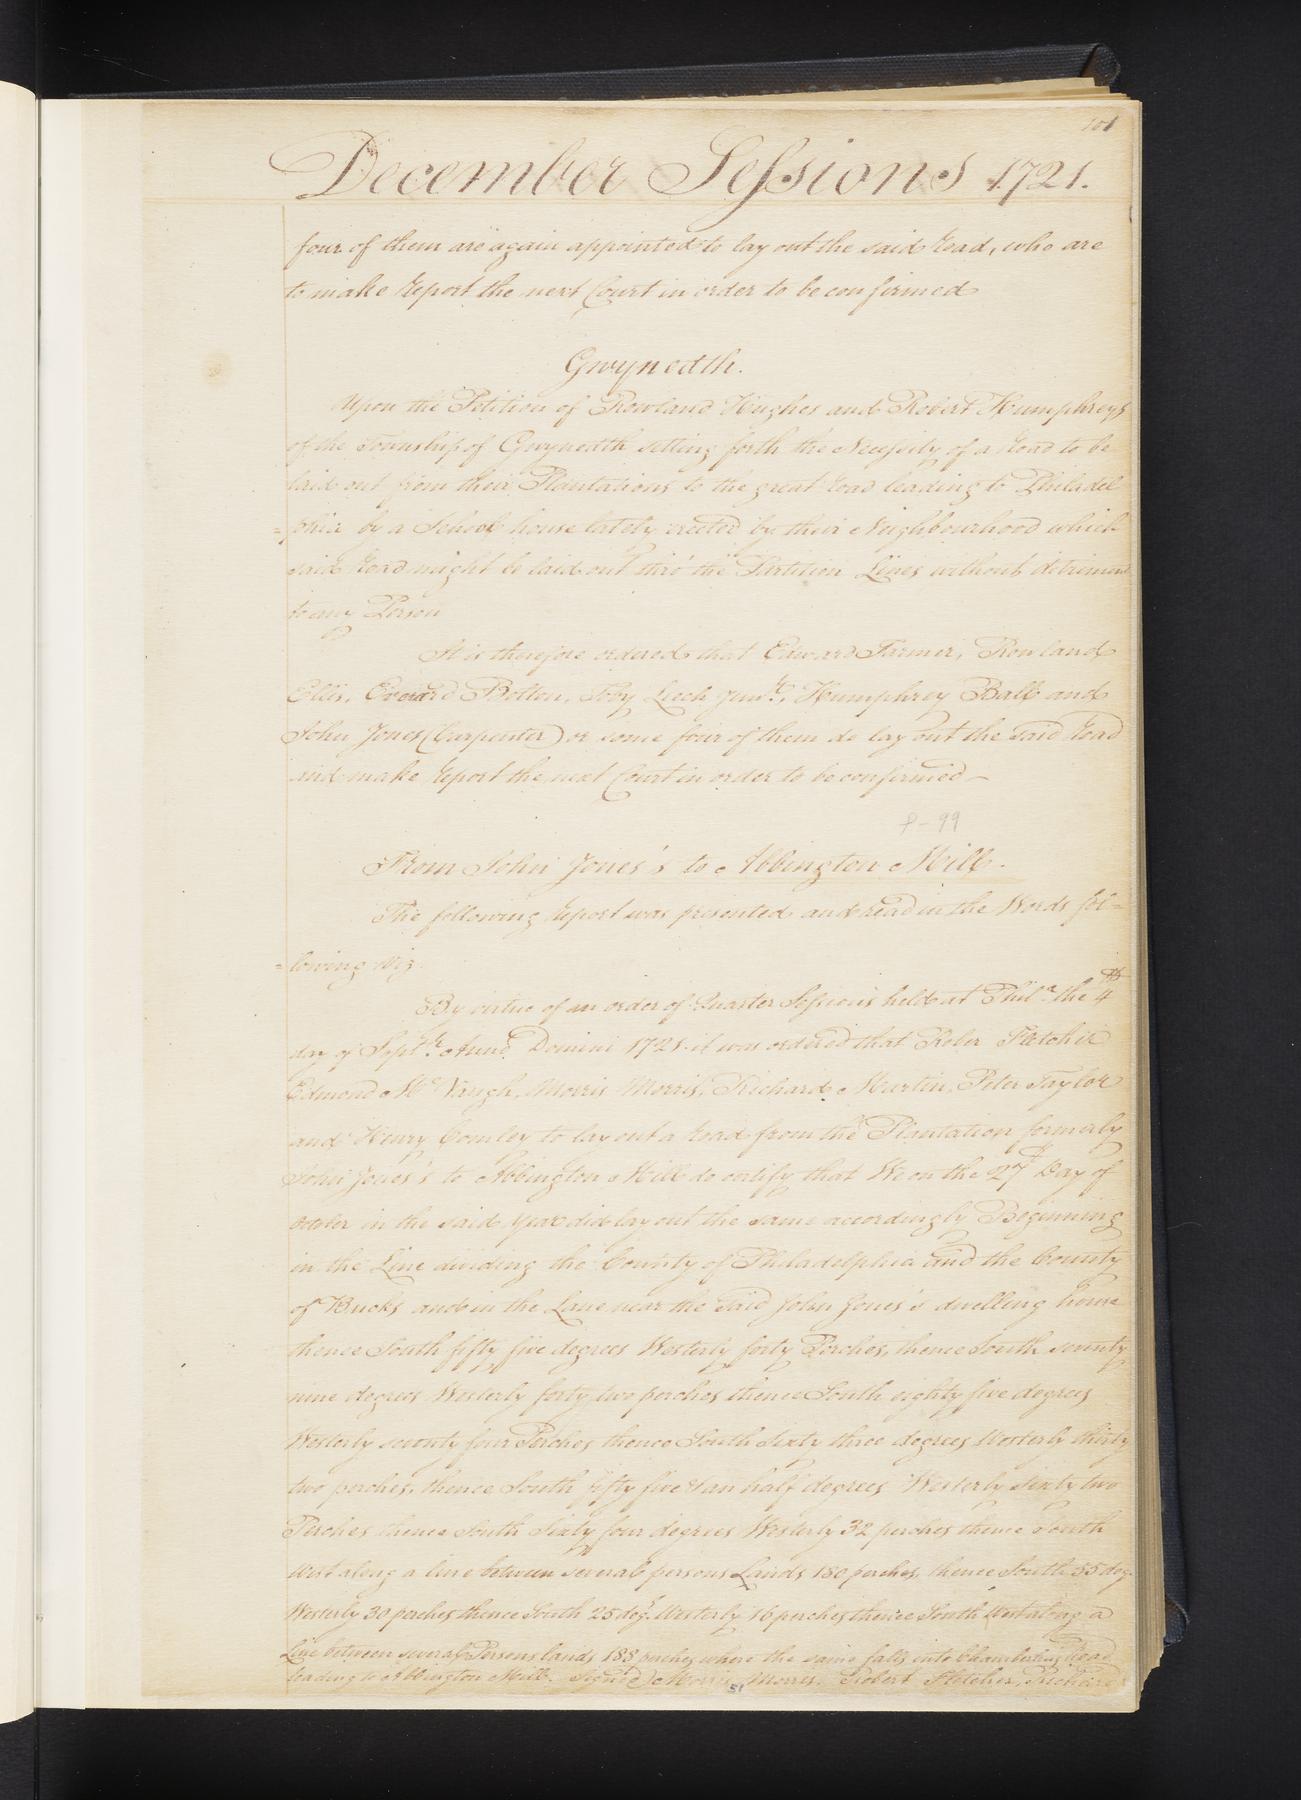 101
December Sessions 1721.
four of them are again appointed to lay out the said Road, who are
to make Report the next Court in order to be confirmed
Gwynedth.
Upon the Petition of Rowland Hughes and Robert Humphreys
of the Township of Gwynedth setting forth the Necessity of a Road to be
laid out from their Plantations to the great Road leading to Philadel
=phia by a School house lately erected by their Neighbourhood which
said Road might be laid out thro' the Partition Lines without detriment
to any Person
It is therefore ordered that Edward Farmer, Rowland
Ellis, Everard Bolton, Toby Leech Junr., Humphrey Ball and
John Jones (Carpenter) or some four of them do lay out the said Road
and make Report the next Court in order to be confirmed —
P-99
From John Jones's to Abbington Mill.
The following Report was presented and read in the Words fol=
=lowing Viz
By virtue of an order of Quarter Sessions held at Phila. the 4th
day of Septbr. Anno Domini 1721 it was ordered that Rober Fletcher
Edmond Mc Vaugh, Morris Morris, Richard Martin, Peter Taylor
and Henry Comley to lay out a Road from the Plantation formerly
John Jones's to Abbington Mill do certify that We on the 27th Day of
October in the said year did lay out the same accordingly Beginning
in the Line dividing the County of Philadelphia and the County
of Bucks and in the Lane near the said John Jones's dwelling house
thence South fifty five degrees Westerly forty Perches, thence South seventy
nine degrees Westerly forty two perches thence South eighty five degrees
Westerly seventy four Perches thence South Sixty three degrees Westerly thirty
two perches, thence South fifty five & an half degrees Westerly Sixty two
Perches thence South Sixty four degrees Westerly 32 perches thence South
West along a line between several persons Lands 180 perches, thence South 55 deg.
Westerly 30 perches thence South 25 deg. Westerly 16 perches thence South West along a
Line between several Persons lands 188 perches where the same falls into Road
leading to Abbington Mill. Signed Morris Morris, Robert Fletcher, Richard
51